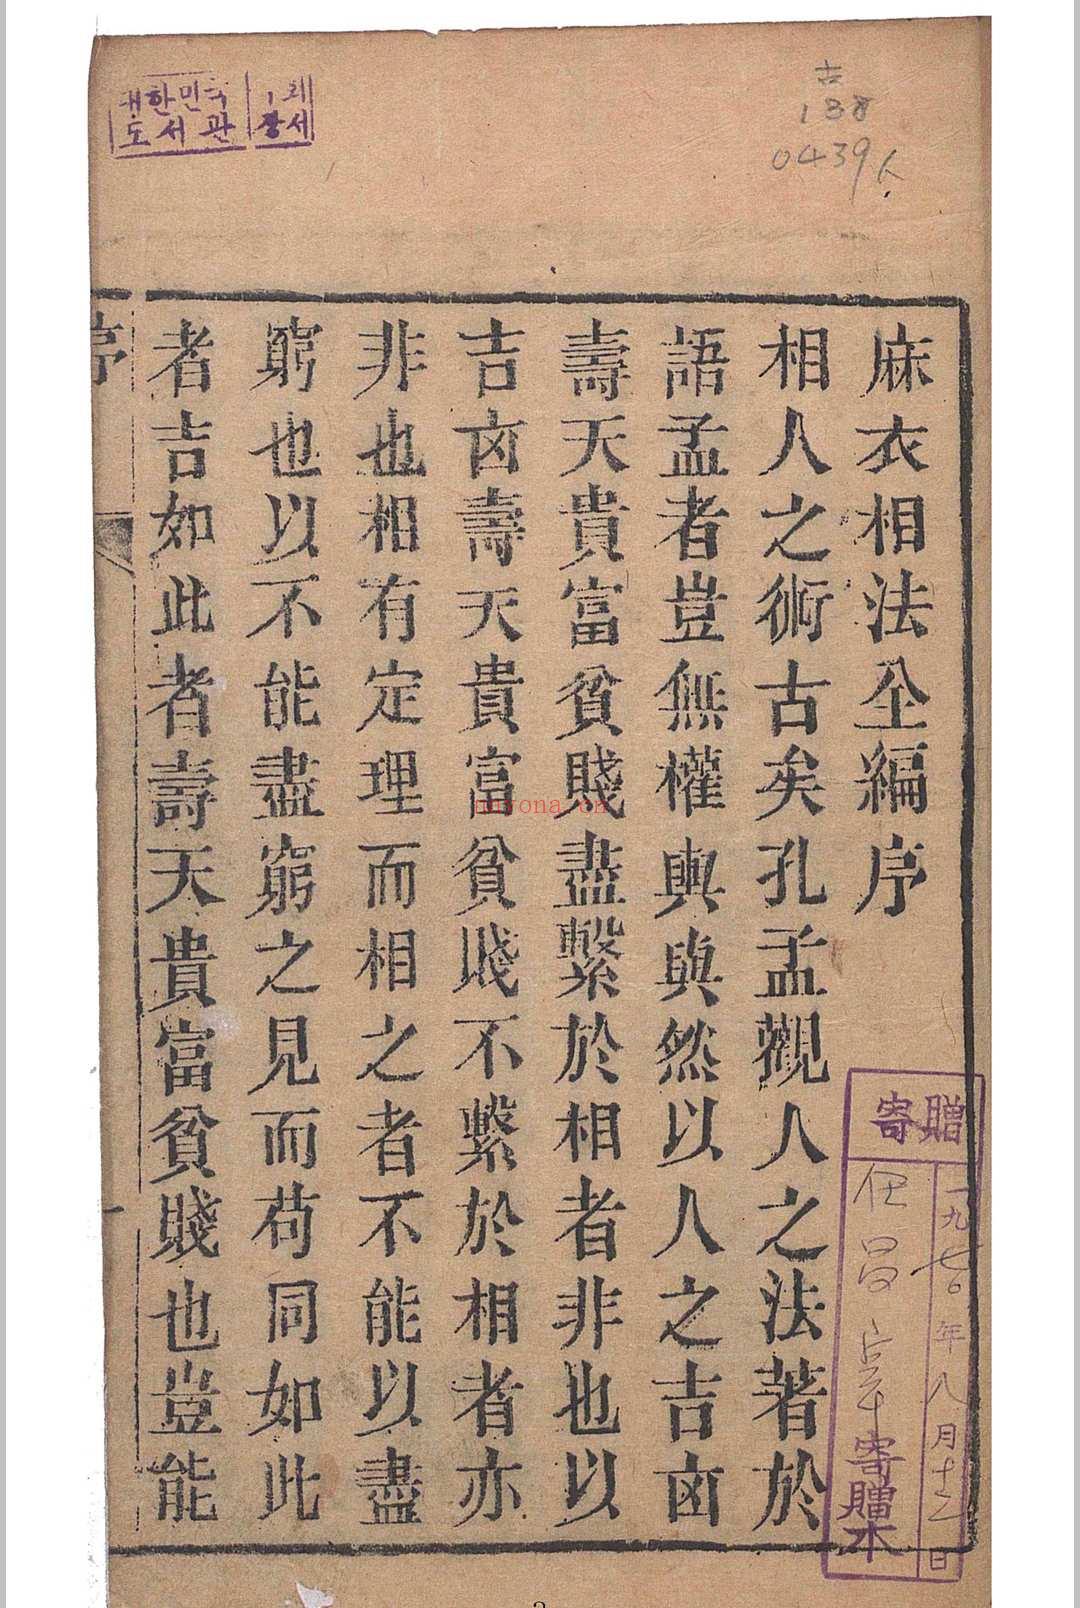 대한민국
도서관
장서
古
138
0439人
麻衣相法全編序
相人之術古矣孔孟觀人之法著於
語孟者豈無權輿與然以人之吉凶
壽夭貴富貧賤盡繫於相者非也以
吉凶壽夭貴富貧賤不繫於相者亦
非也相有定理而相之者不能以盡
窮也以不能盡窮之見而苟同如此
者吉如此者壽夭貴富貧賤也豈能
序
一
寄贈
一九七〇年八月十二日
寄贈本
nayona.cn